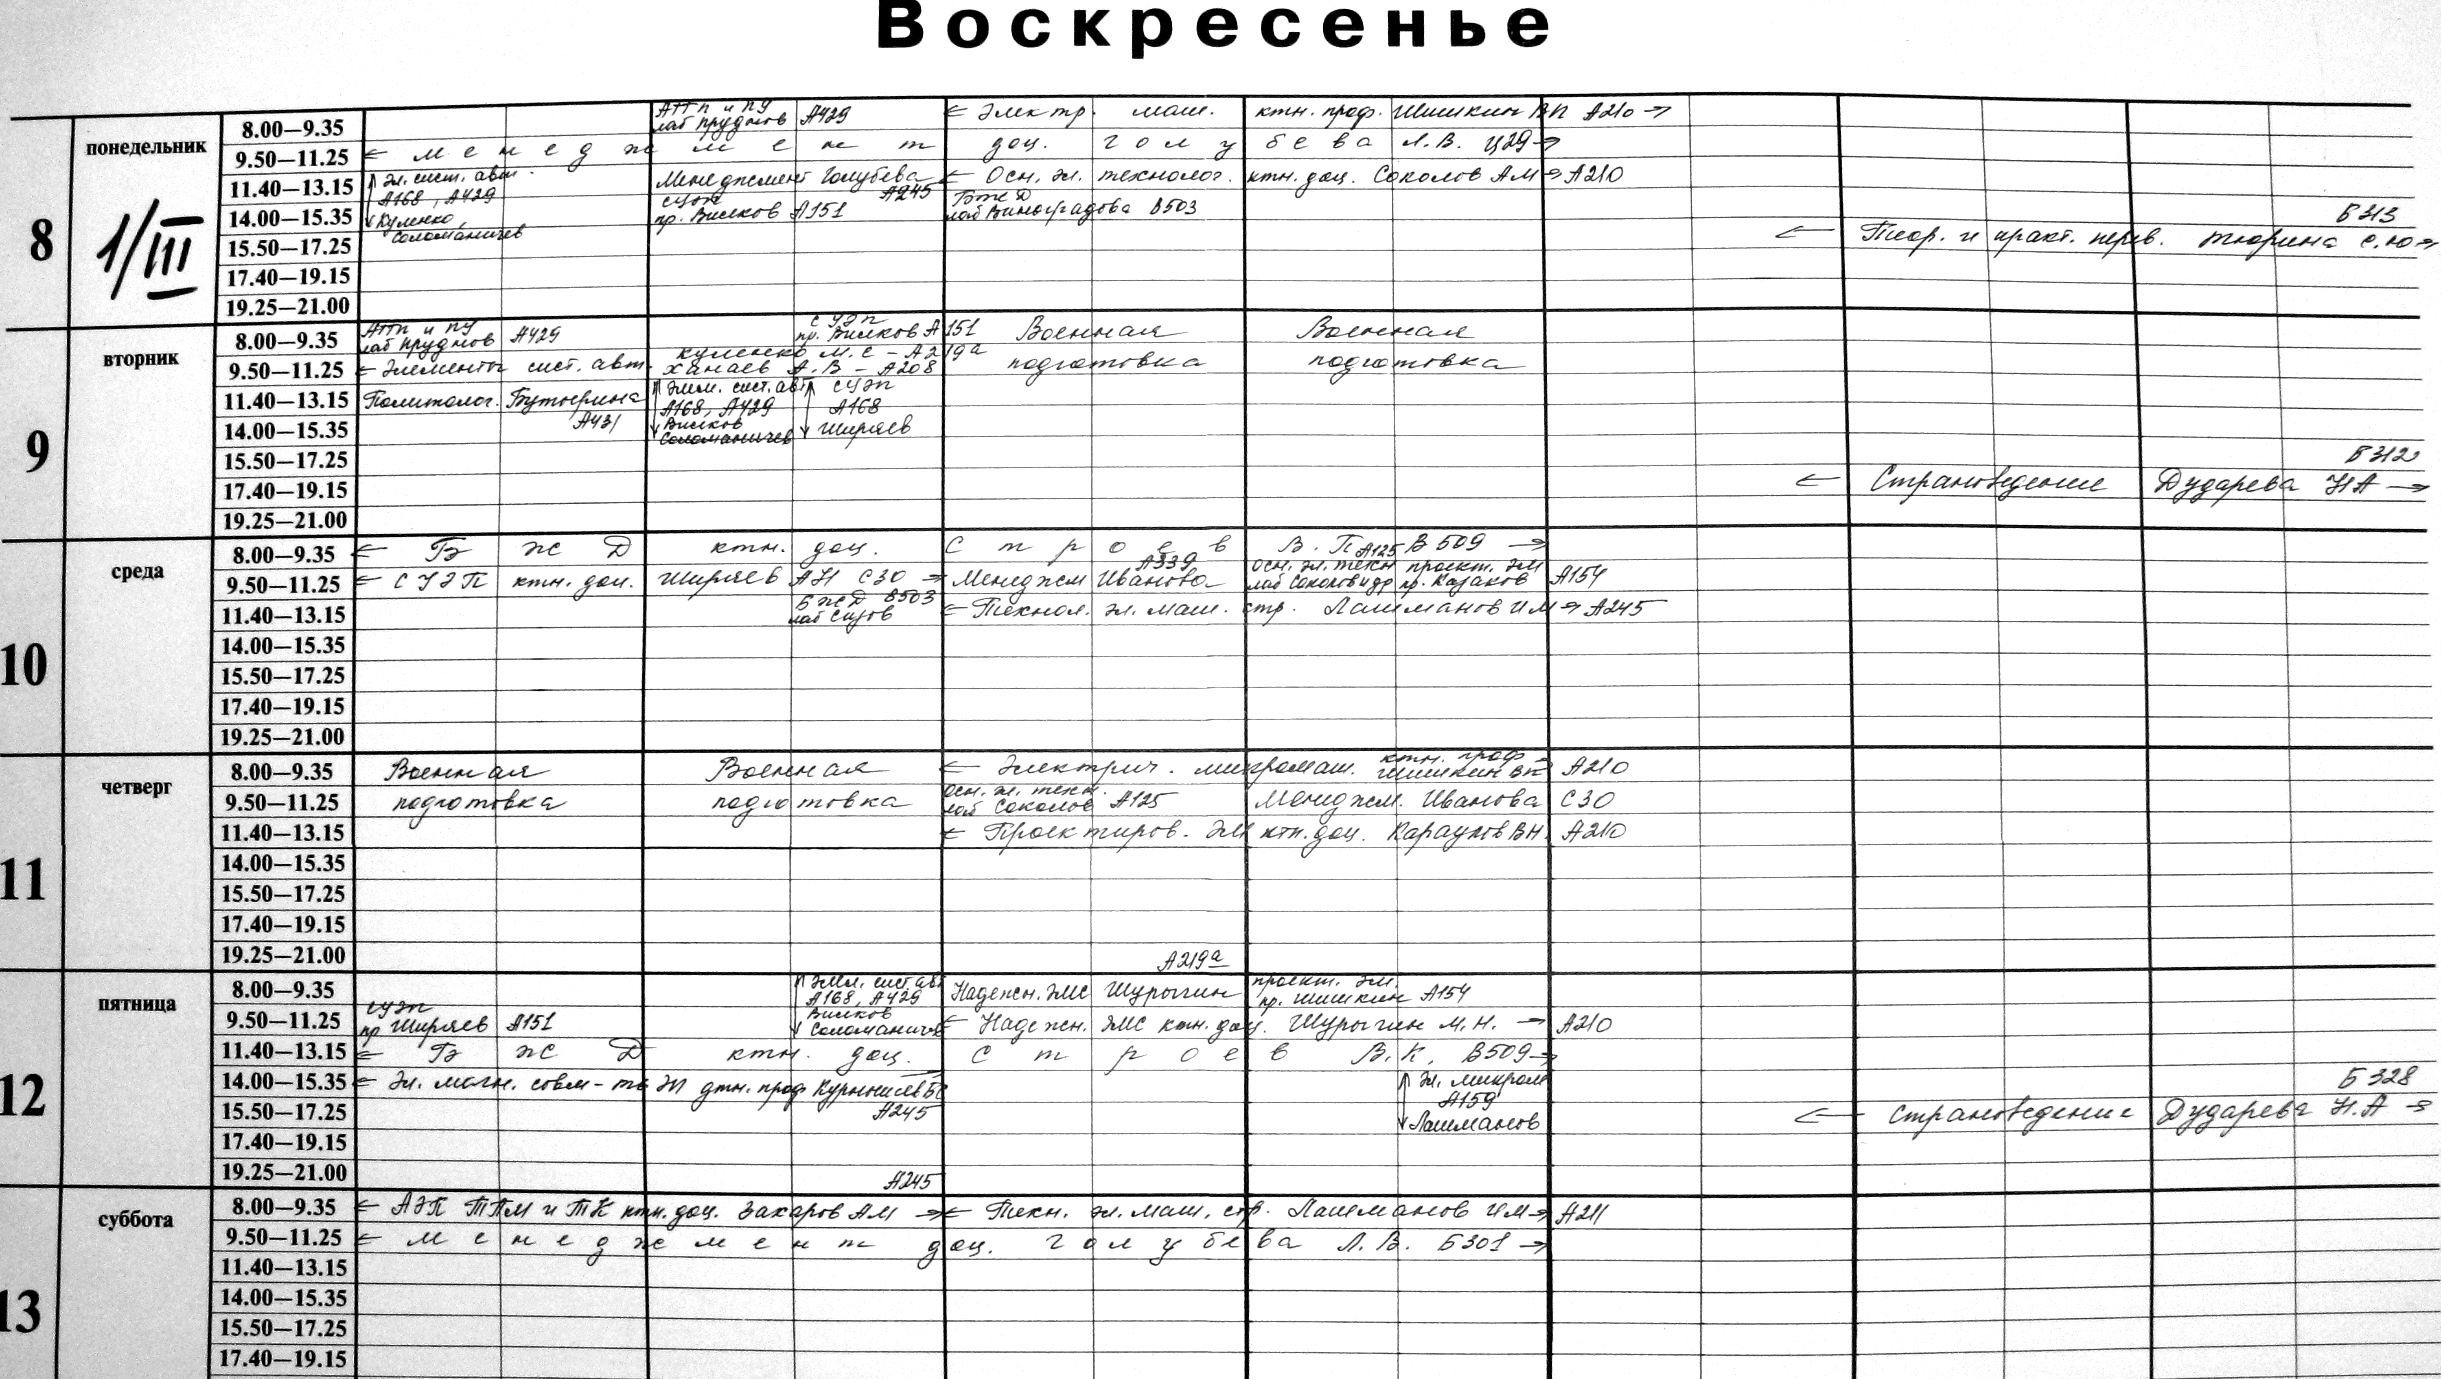 Воскресенье
8
понедельник
1/III
8.00—9.35
АТП и ПУ
лаб Прудков А429
← Электр. маш. ктн. проф. Шишкин ВП А210 →
9.50—11.25
← менеджмент доц. Голубева Л.В. Ц29 →
11.40—13.15
Эл. сист. авт.
А168, А429
Менеджмент Голубева
А245
← Осн. эл. технолог. ктн. доц. Соколов АМ → А210
14.00—15.35
Куленко,
Соломаничев
СУЭП
пр. Вилков А151
БЖД
лаб Виноградова В503
15.50—17.25
Б313
← Теор. и практ. перев. Тюрина С.Ю →
17.40—19.15
19.25—21.00
9
вторник
8.00—9.35
АТП и ПУ
лаб Прудков А429
СУЭП
пр. Вилков А151
Военная
Военная
9.50—11.25
← Элементы сист. авт.
Куленко М.Е – А219а
Ханаев А.В – А208
подготовка
подготовка
11.40—13.15
Политолог. Бутырина
А431
Элем. сист. авт
А168, А429
СУЭП
А168
14.00—15.35
Вилков
Соломаничев
Ширяев
15.50—17.25
Б312
17.40—19.15
← Страноведение Дударева НА →
19.25—21.00
10
среда
8.00—9.35
← БЖД ктн. доц. Строев В.П В509 →
9.50—11.25
← СУЭП ктн. доц. Ширяев АН С30 →
А339
Менеджм Иванова
А125
осн. эл. техн
лаб Соколов и др
проект. ЭМ
пр. Казаков А154
11.40—13.15
БЖД В503
лаб Сизов
← Технол. эл. маш. стр. Лашманов ИМ → А245
14.00—15.35
15.50—17.25
17.40—19.15
19.25—21.00
11
четверг
8.00—9.35
Военная
Военная
← Электрич. микромаш. ктн. проф
Шишкин ВП А210
9.50—11.25
подготовка
подготовка
осн. эл. техн.
лаб Соколов А125
Менеджм. Иванова С30
11.40—13.15
← Проектиров. ЭМ ктн. доц. Караулов ВН. А210
14.00—15.35
15.50—17.25
17.40—19.15
19.25—21.00
12
пятница
8.00—9.35
Элем. сист. авт
А168, А429
А219а
Надежн. ЭМС Шурыгин
проект. ЭМ.
пр. Шишкин А154
9.50—11.25
СУЭП
пр Ширяев А151
Вилков
Соломаничев
← Надежн. ЭМС ктн. доц. Шурыгин М.Н. → А210
11.40—13.15
← БЖД ктн. доц. Строев В.К. В509 →
14.00—15.35
← Эл. магн. совм-ть ЭП дтн. проф Курнышев БС
А245
Эл. микром
А159
Лашманов
15.50—17.25
Б328
← Страноведение Дударева Н.А →
17.40—19.15
19.25—21.00
13
суббота
8.00—9.35
А245
← АЭП ТПМ и ТК ктн. доц. Захаров АМ →
← Техн. эл. маш. стр. Лашманов ИМ → А211
9.50—11.25
← менеджмент доц. Голубева Л.В. Б301 →
11.40—13.15
14.00—15.35
15.50—17.25
17.40—19.15